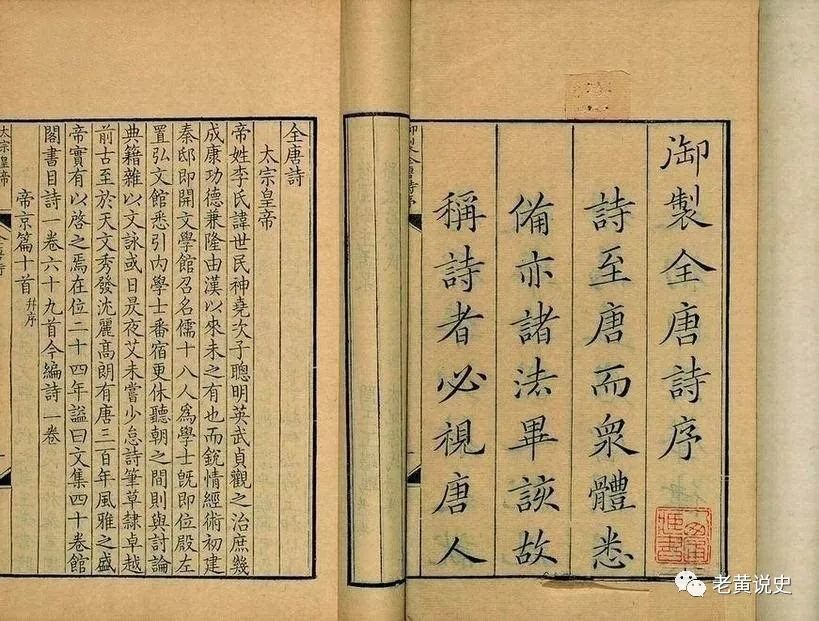 御製全唐詩序
詩至唐而衆體悉
備亦諸法畢該故
稱詩者必視唐人
全唐詩
太宗皇帝
帝姓李氏諱世民神堯次子聰明英武貞觀之治庶幾
成康功德兼隆由漢以來未之有也而銳情經術初建
秦邸即開文學館召名儒十八人爲學士既即位殿左
置弘文館悉引內學士番宿更休聽朝之間則與討論
典籍雜以文詠或日昃夜艾未嘗少怠詩筆草隸卓越
前古至於天文秀發沈麗高朗有唐三百年風雅之盛
帝實有以啓之焉在位二十四年謚曰文集四十卷館
閣書目詩一卷六十九首今編詩一卷
帝京篇十首 并序
太宗皇帝
老黄说史